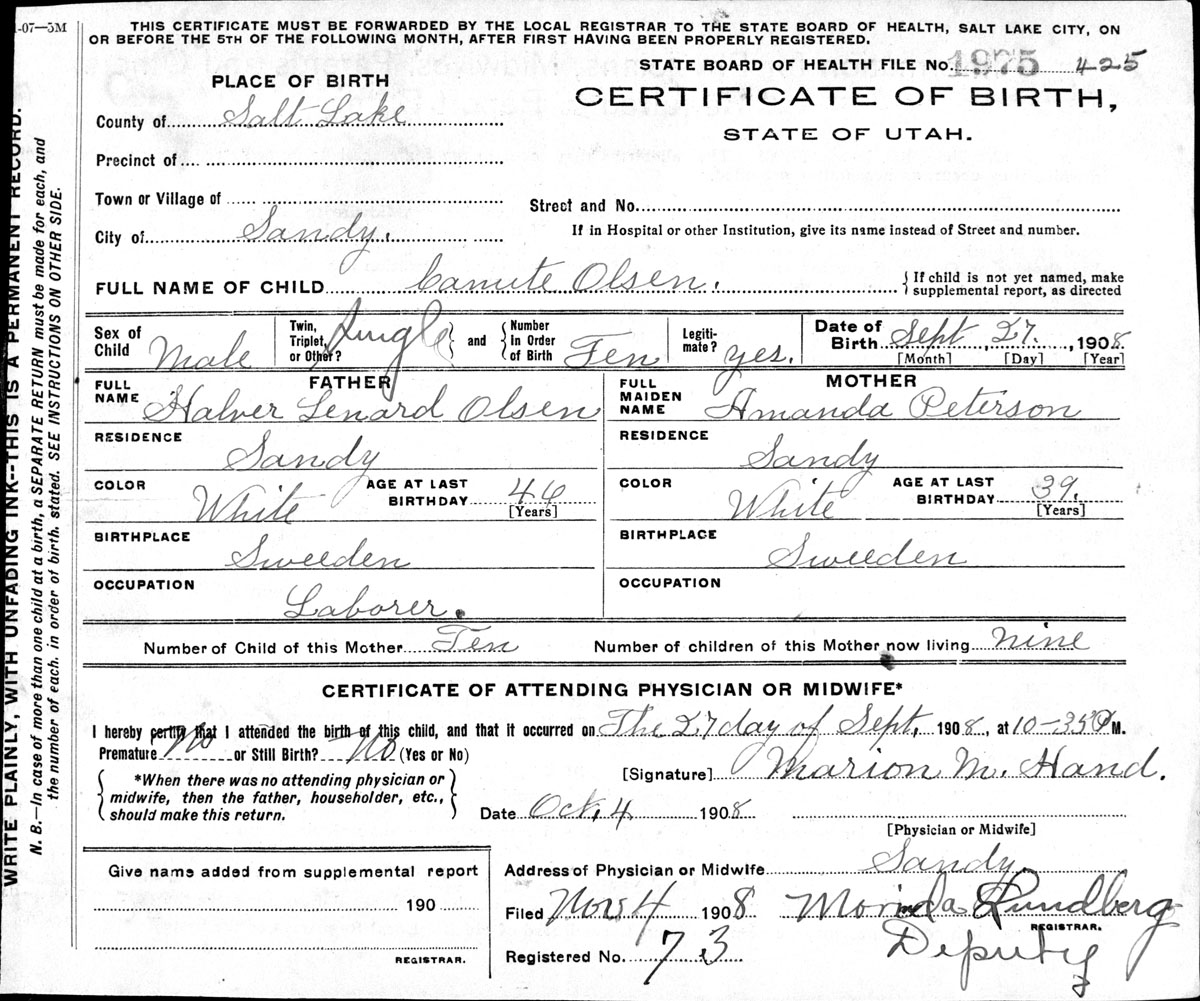 1-07—5M
THIS CERTIFICATE MUST BE FORWARDED BY THE LOCAL REGISTRAR TO THE STATE BOARD OF HEALTH, SALT LAKE CITY, ON
OR BEFORE THE 5TH OF THE FOLLOWING MONTH, AFTER FIRST HAVING BEEN PROPERLY REGISTERED.
STATE BOARD OF HEALTH FILE No. 1975 425
PLACE OF BIRTH
CERTIFICATE OF BIRTH,
STATE OF UTAH.
County of Salt Lake
Precinct of
Town or Village of
Street and No.
City of Sandy.
If in Hospital or other Institution, give its name instead of Street and number.
FULL NAME OF CHILD Canute Olsen. { If child is not yet named, make
supplemental report, as directed
Sex of Child Male
Twin, Triplet, or Other? Single } and { Number In Order of Birth Ten
Legiti-mate? yes.
Date of Birth Sept, 27, 1908.
[Month] [Day] [Year]
FATHER
FULL NAME Halver Lenard Olsen
MOTHER
FULL MAIDEN NAME Amanda Peterson
RESIDENCE Sandy
RESIDENCE Sandy
COLOR White AGE AT LAST BIRTHDAY 46 [Years]
COLOR White AGE AT LAST BIRTHDAY 39. [Years]
BIRTHPLACE Sweeden
BIRTHPLACE Sweeden
OCCUPATION Laborer.
OCCUPATION
Number of Child of this Mother Ten Number of children of this Mother now living nine
CERTIFICATE OF ATTENDING PHYSICIAN OR MIDWIFE*
I hereby certify that I attended the birth of this child, and that it occurred on The 27 day of Sept, 1908, at 10-35 P M.
Premature No or Still Birth? No (Yes or No)
{ *When there was no attending physician or
midwife, then the father, householder, etc.,
should make this return. }
[Signature] Marion M. Hand.
Date Oct, 4 1908
[Physician or Midwife]
Give name added from supplemental report
190
REGISTRAR.
Address of Physician or Midwife Sandy
Filed Nov 4 1908 Morinda Rundberg
REGISTRAR.
Registered No. 73 Deputy
WRITE PLAINLY, WITH UNFADING INK--THIS IS A PERMANENT RECORD.
N. B.—In case of more than one child at a birth, a SEPARATE RETURN must be made for each, and
the number of each, in order of birth, stated. SEE INSTRUCTIONS ON OTHER SIDE.